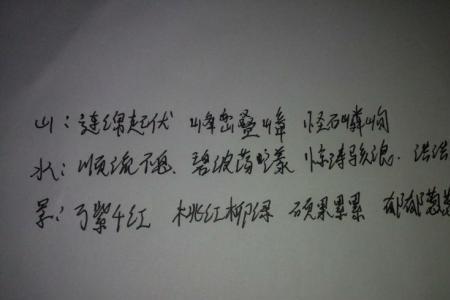 山：连绵起伏 峰峦叠嶂 怪石嶙峋
水：川流不息. 碧波荡漾 惊涛骇浪. 浩浩
景：万紫千红 桃红柳绿 硕果累累 郁郁葱葱